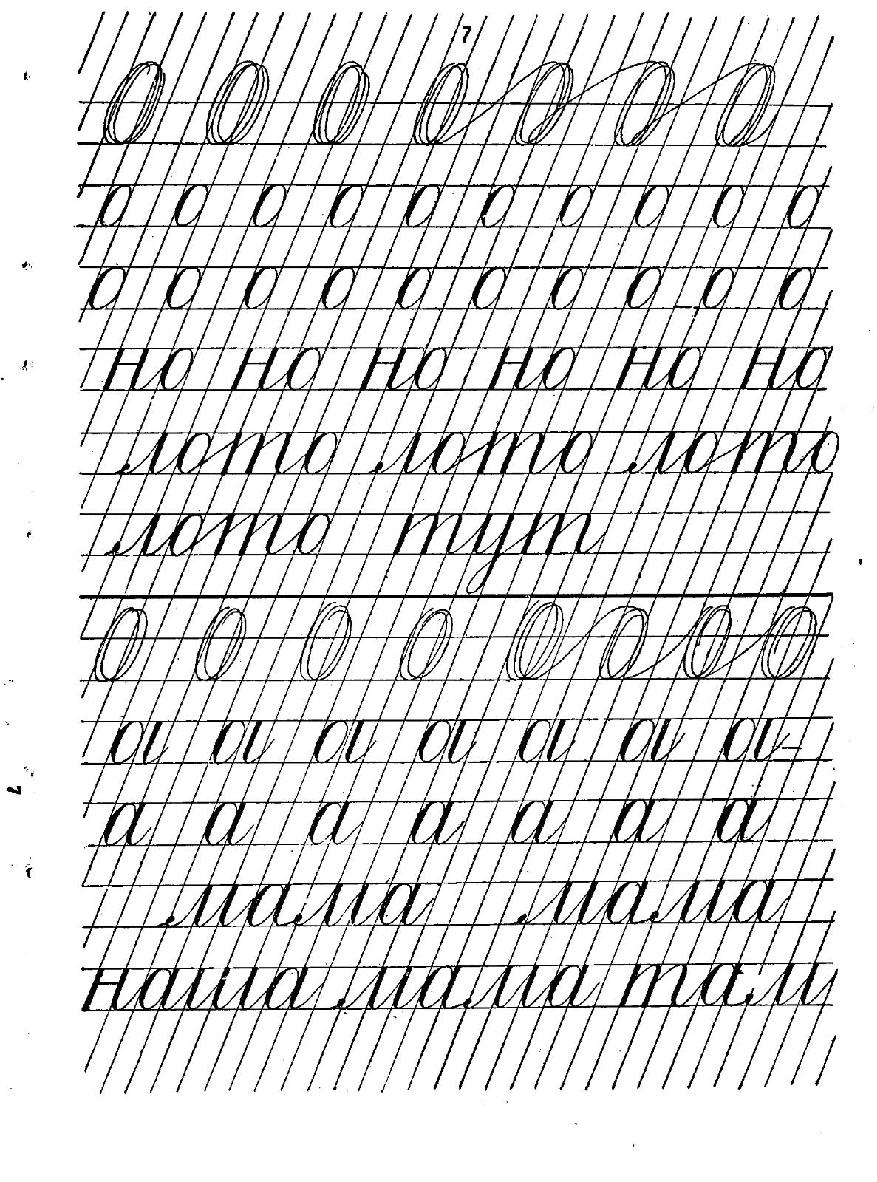 7
О О О О О О О
о о о о о о о о о о
о о о о о о о о о о
но но но но но но
лото лото лото
лото тут
О О О О О О О О
а а а а а а а
а а а а а а а
мама мама
наша мама там